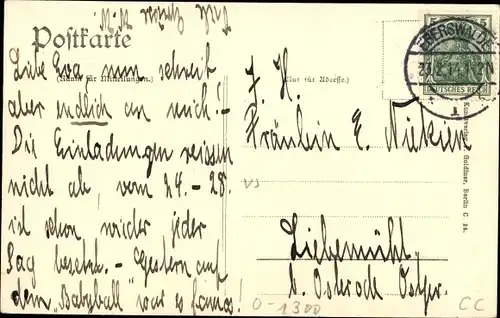 Postkarte
(Raum für Mitteilungen.)
(Nur für Adresse.)
Liebe Eva, nun schreib
aber endlich an mich! -
Die Einladungen reissen
nicht ab, vom 24. - 28.
ist schon wieder jeder
Tag besetzt. - Gestern auf
dem "Babyball" war es famos!
F. H.
Fräulein E.
Liebemühl,
b. Osterode Ostpr.
EBERSWALDE
DEUTSCHES REICH
5
5
1
Goldiner, Berlin C
VS
0-1300
CC